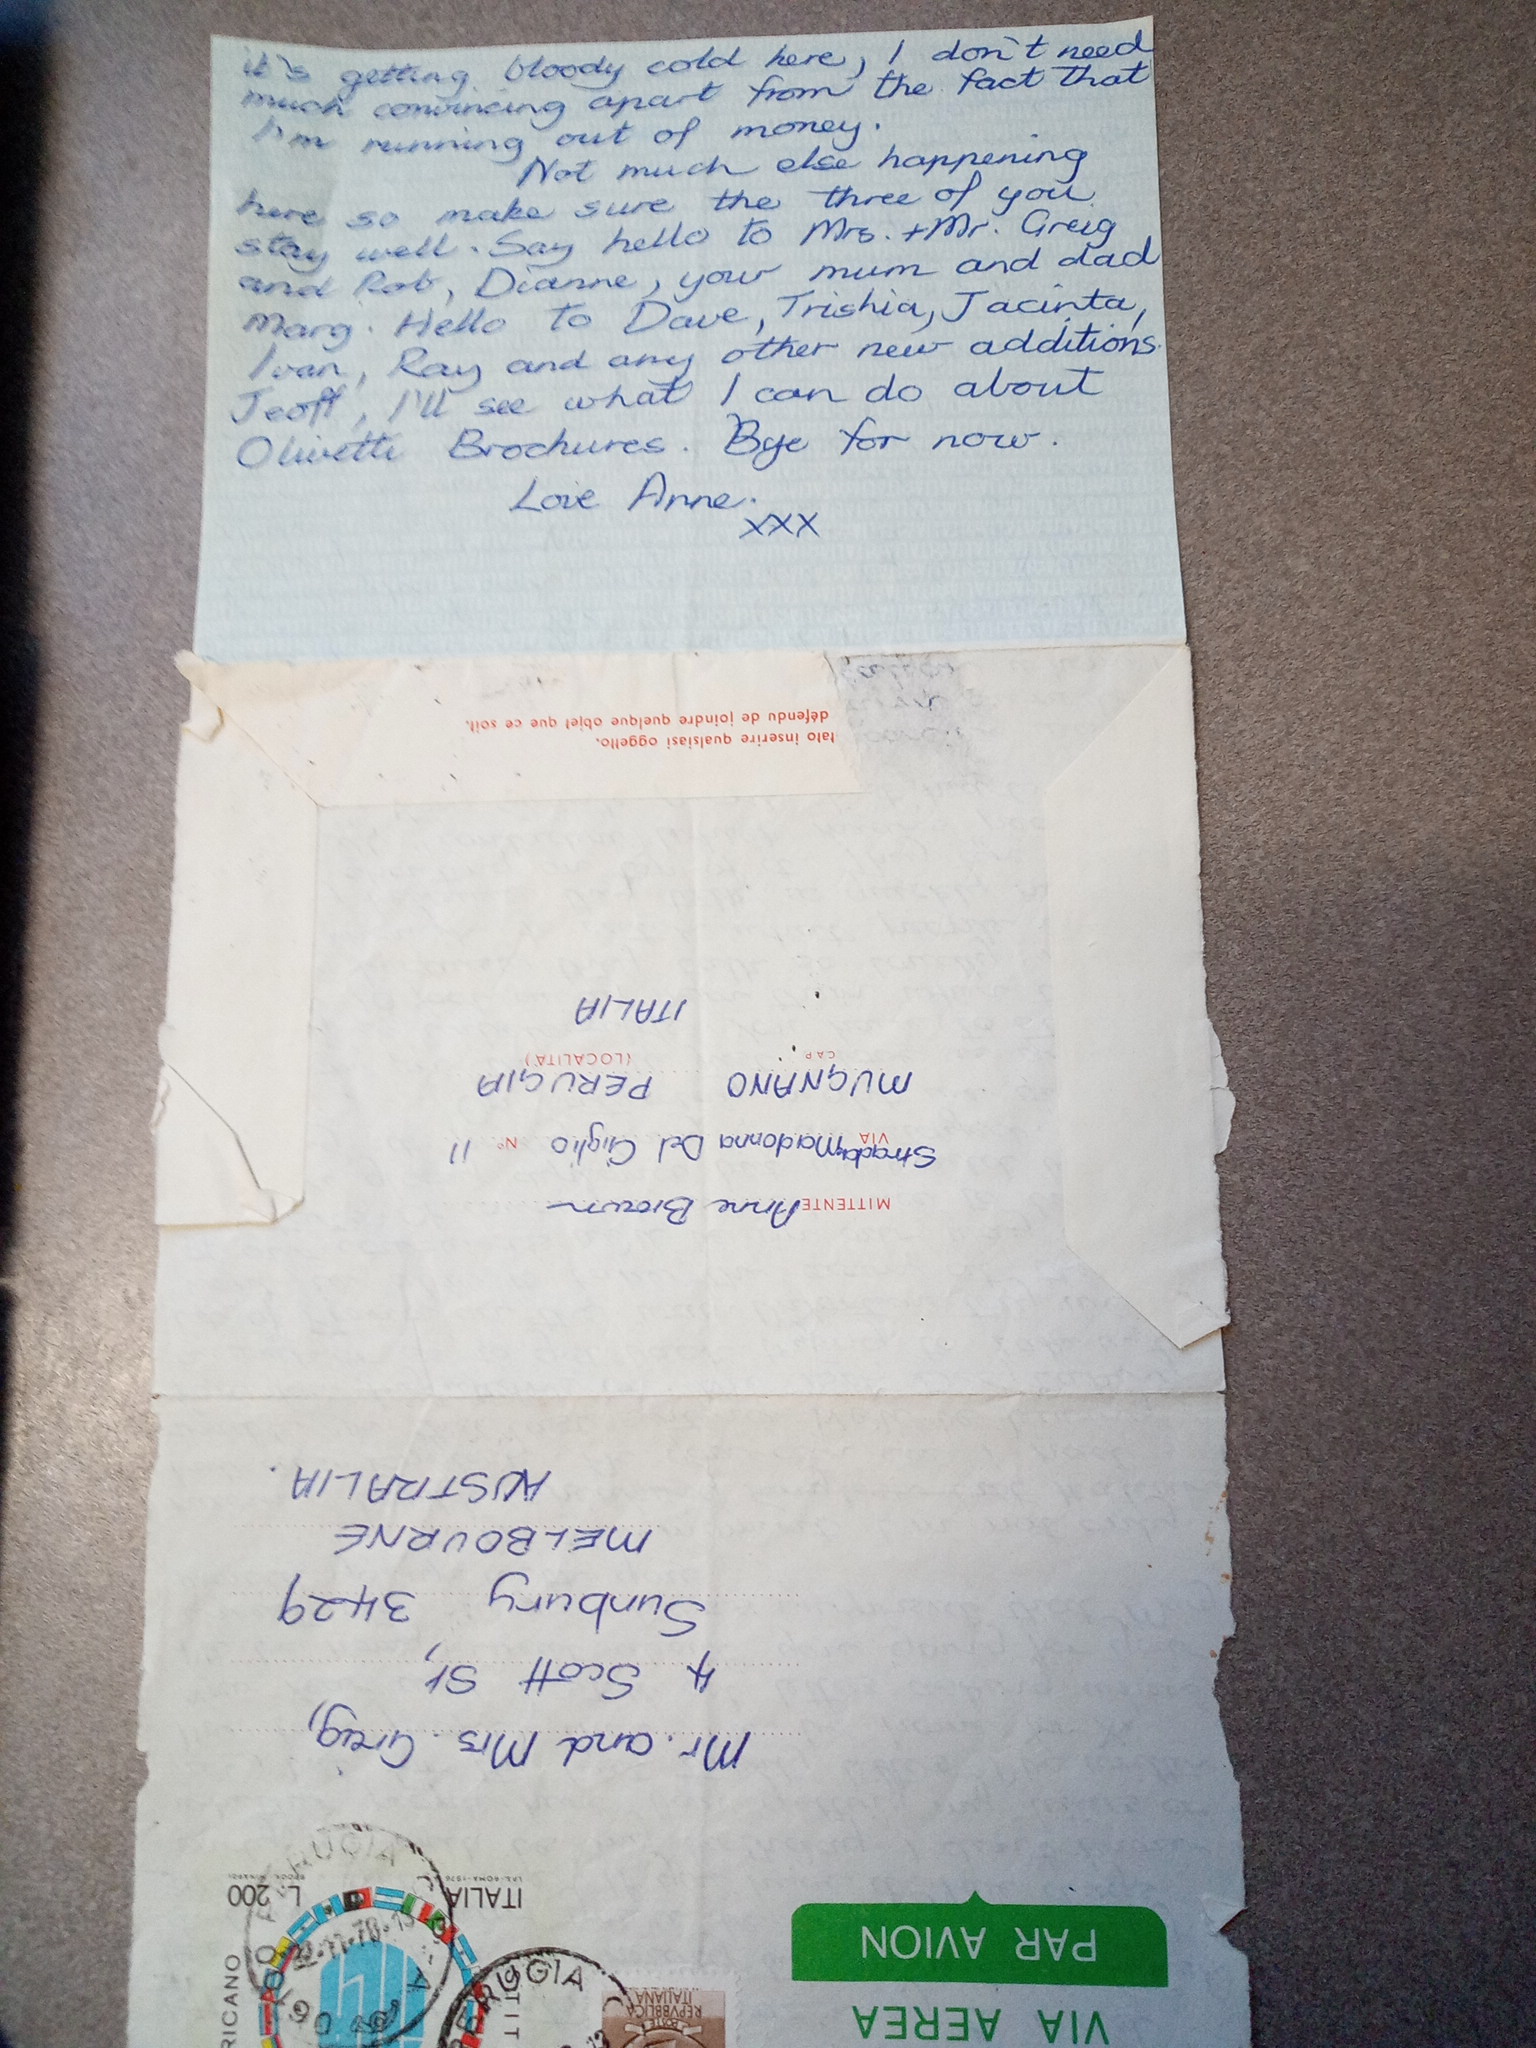 it's getting bloody cold here, I don't need
much convincing apart from the fact that
I'm running out of money.
Not much else happening
here so make sure the three of you
stay well. Say hello to Mrs. + Mr. Greig
and Rob, Dianne, your mum and dad
Marg. Hello to Dave, Trishia, Jacinta,
Ivan, Ray and any other new additions.
Jeoff, I'll see what I can do about
Olivetti Brochures. Bye for now.
Love Anne.
xxx
tato inserire qualsiasi oggetto.
défendu de joindre quelque objet que ce soit.
MITTENTE Anne Brown
VIA Strada Madonna Del Giglio N° 11
MUGNANO PERUGIA
CAP (LOCALITÀ)
ITALIA
VIA AEREA
PAR AVION
POSTE
REPVBBLICA
ITALIANA
PERUGIA
RICANO
ITALIA L. 200
Mr. and Mrs. Greig,
4 Scott St,
Sunbury 3429
MELBOURNE
AUSTRALIA.